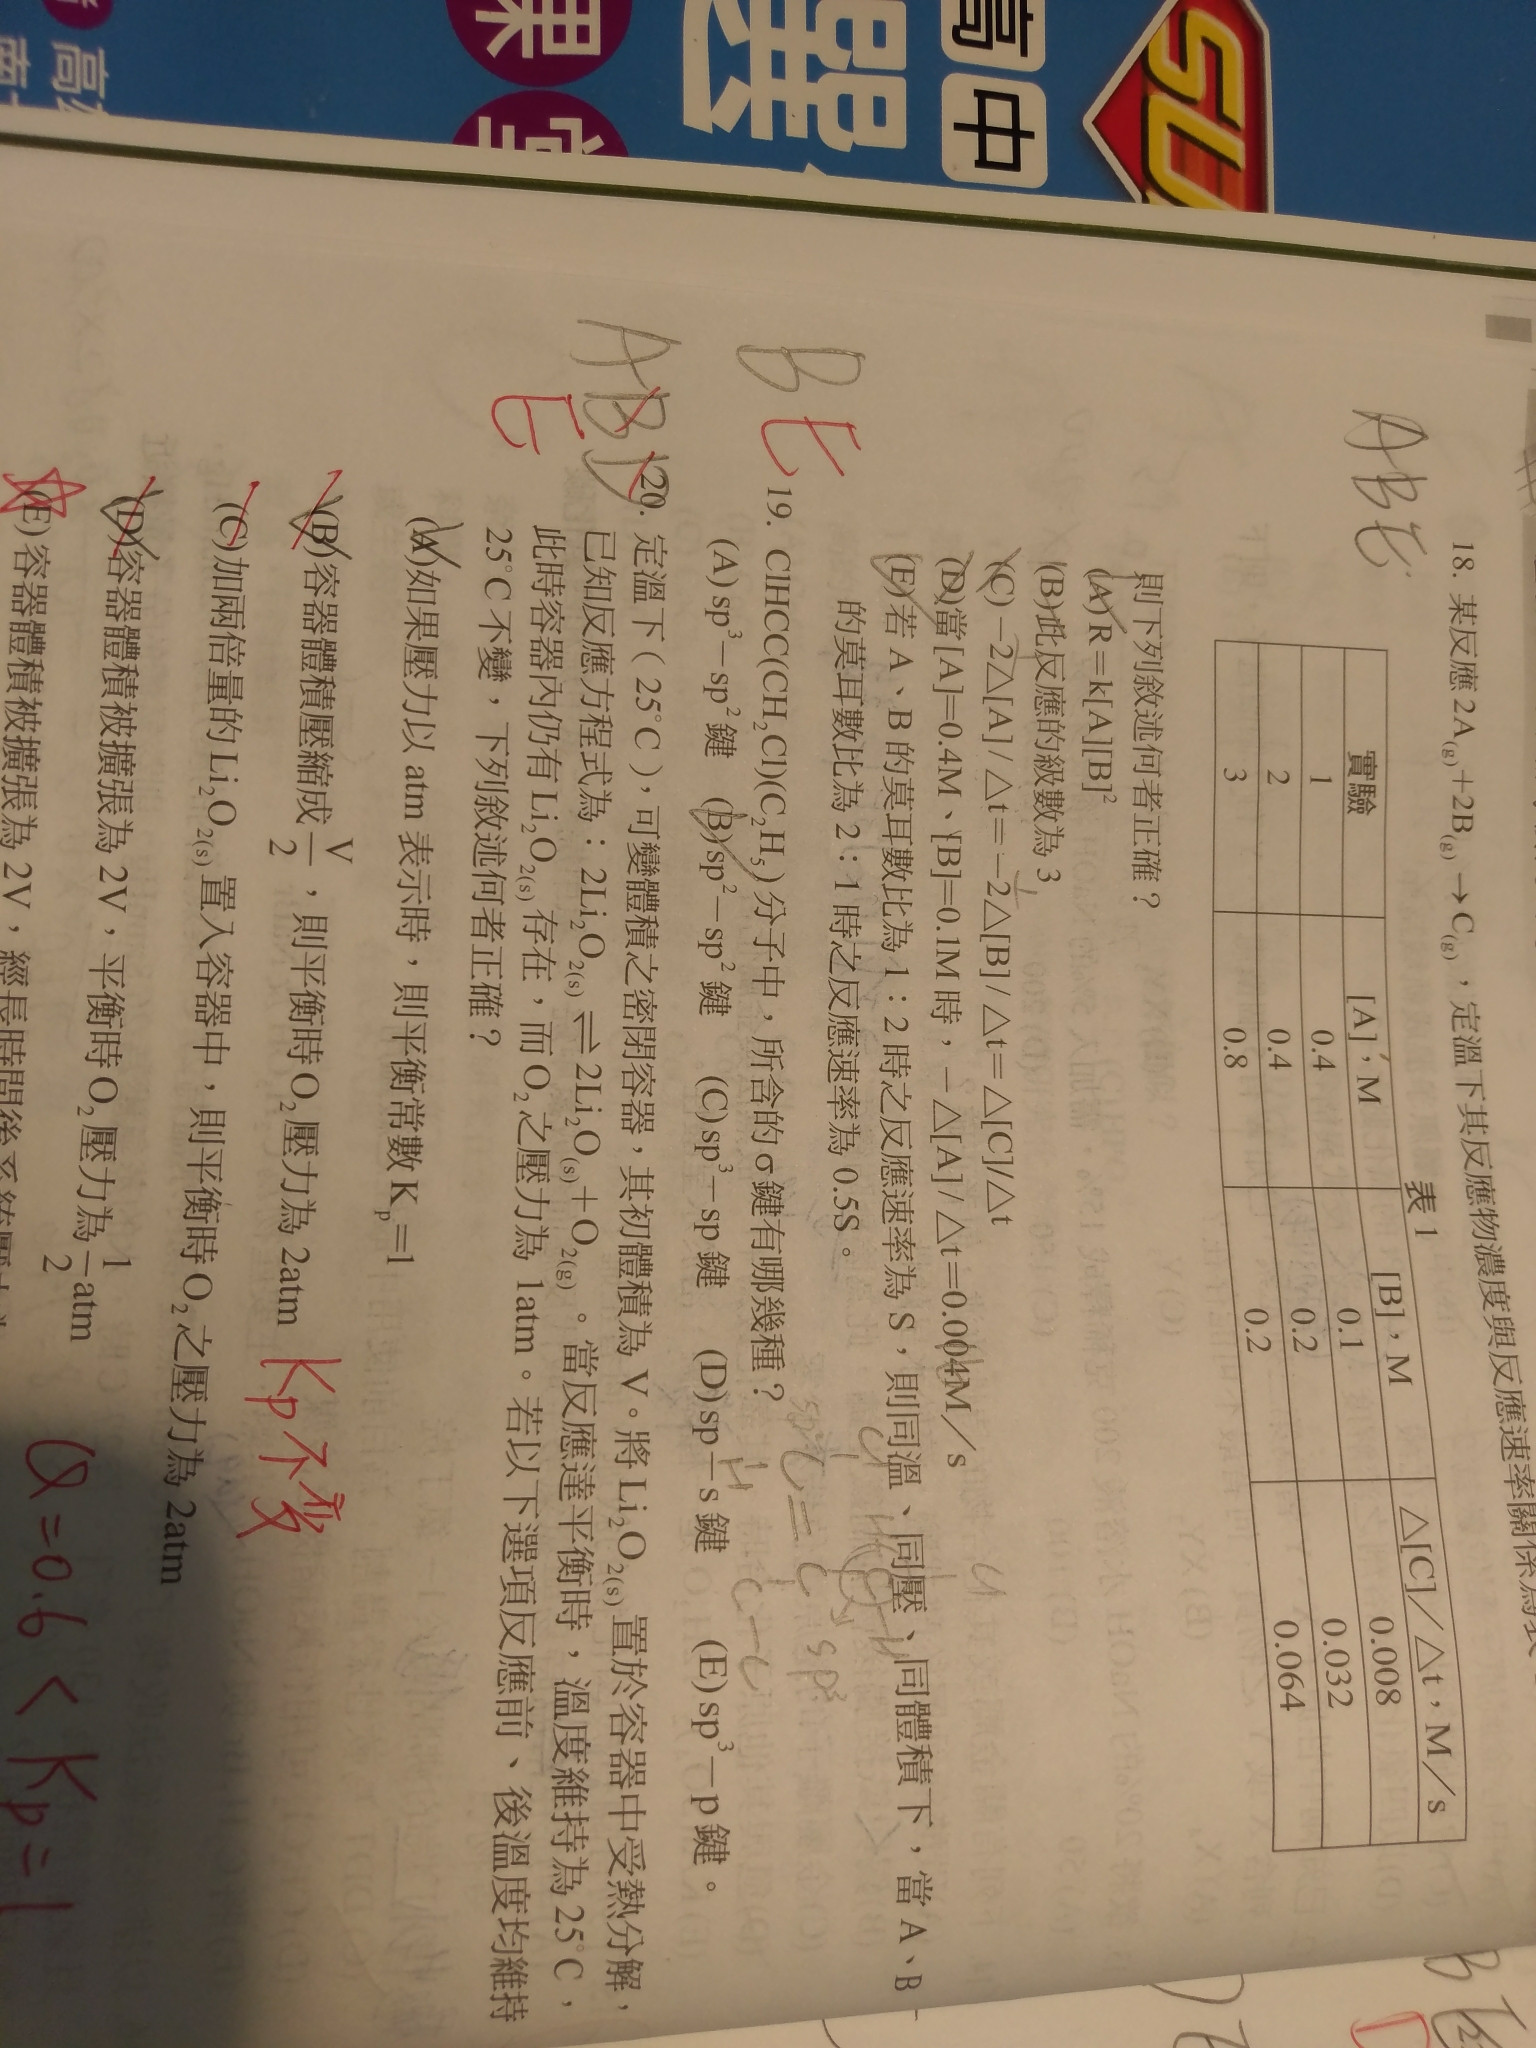 SU
高中
選
果
高
18. 某反應 2A(g)+2B(g) → C(g),定溫下其反應物濃度與反應速率關係為表
表 1
實驗 [A],M [B],M △[C]/△t,M/s
1 0.4 0.1 0.008
2 0.4 0.2 0.032
3 0.8 0.2 0.064
則下列敘述何者正確?
(A) R=k[A][B]²
(B)此反應的級數為 3
(C) −2△[A]/△t=−2△[B]/△t=△[C]/△t
(D)當[A]=0.4M、[B]=0.1M時,−△[A]/△t=0.004M/s
(E)若 A、B 的莫耳數比為 1:2 時之反應速率為 S,則同溫、同壓、同體積下,當 A、B
的莫耳數比為 2:1 時之反應速率為 0.5S。
ABE
19. ClHCC(CH₂Cl)(C₂H₅) 分子中,所含的 σ 鍵有哪幾種?
(A) sp³−sp² 鍵 (B) sp²−sp² 鍵 (C) sp³−sp 鍵 (D) sp−s 鍵 (E) sp³−p 鍵。
BE
C=C
sp³
20. 定溫下(25°C),可變體積之密閉容器,其初體積為 V。將 Li₂O₂(s)置於容器中受熱分解,
已知反應方程式為:2Li₂O₂(s) ⇌ 2Li₂O(s)+O₂(g)。當反應達平衡時,溫度維持為 25°C,
此時容器內仍有 Li₂O₂(s)存在,而 O₂之壓力為 1atm。若以下選項反應前、後溫度均維持
25°C 不變,下列敘述何者正確?
ABD
E
(A)如果壓力以 atm 表示時,則平衡常數 Kp=1
(B)容器體積壓縮成 V/2,則平衡時 O₂壓力為 2atm
Kp不變
(C)加兩倍量的 Li₂O₂(s)置入容器中,則平衡時 O₂之壓力為 2atm
(D)容器體積被擴張為 2V,平衡時 O₂壓力為 1/2 atm
Q=0.6<Kp=1
(E)容器體積被擴張為 2V,經長時間後系統壓力為